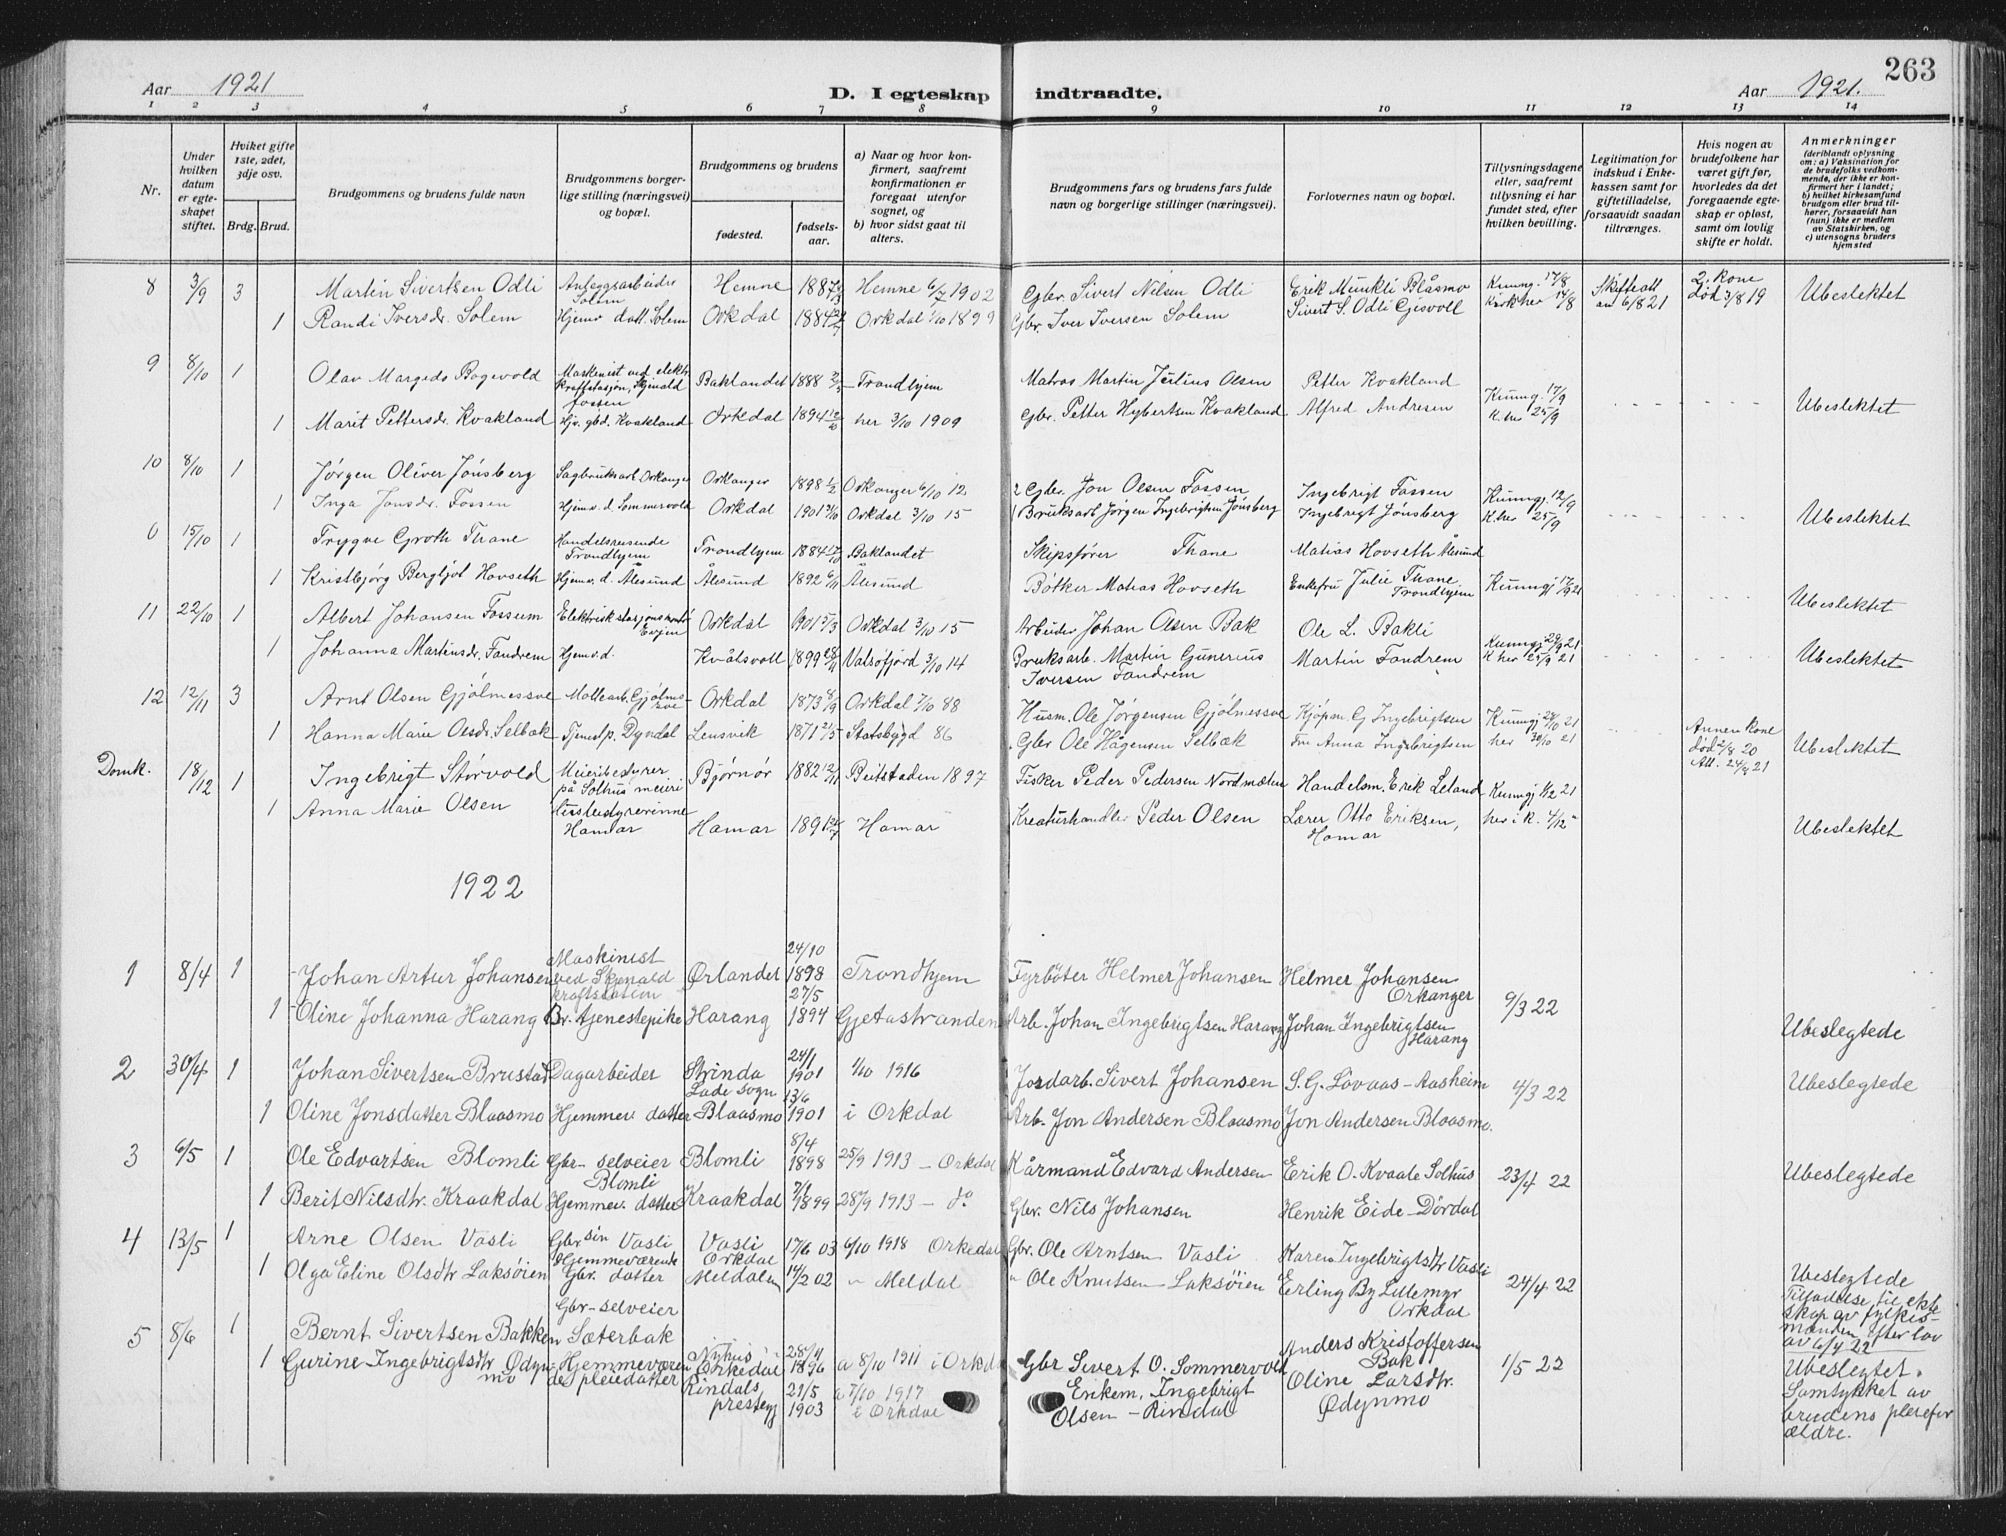 Aar 1921
D. I egteskap indtraadte.
Aar 1921.
263
1 2 3 4 5 6 7 8 9 10 11 12 13 14
Nr.
Under hvilken datum er egteskapet stiftet.
Hviket gifte 1ste, 2det, 3dje osv.
Brdg. Brud.
Brudgommens og brudens fulde navn
Brudgommens borgerlige stilling (næringsvei) og bopæl.
Brudgommens og brudens
fødested.
fødselsaar.
a) Naar og hvor konfirmert, saafremt konfirmationen er foregaat utenfor sognet, og
b) hvor sidst gaat til alters.
Brudgommens fars og brudens fars fulde navn og borgerlige stillinger (næringsvei).
Forlovernes navn og bopæl.
Tillysningsdagene eller, saafremt tillysning ei har fundet sted, efter hvilken bevilling.
Legitimation for indskud i Enkekassen samt for giftetilladelse, forsaavidt saadan tiltrænges.
Hvis nogen av brudefolkene har været gift før, hvorledes da det foregaaende egteskap er opløst, samt om lovlig skifte er holdt.
Anmerkninger (deriblandt oplysning om: a) Vaksination for de brudefolks vedkommende, der ikke er konfirmert her i landet; b) hvilket kirkesamfund brudgom eller brud tilhører, forsaavidt han (hun) ikke er medlem av Statskirken, og c) utensogns bruders hjemsted
8 3/9 3 Martin Sivertsen Odli Anleggsarbeider Solem Hemne 1887 Hemne 6/7 1902 Gbr. Sivert Nilsen Odli Erik Munkli Blåsmo Kunng. 17/8 Skifteatt av 6/8 21 2. kone død 3/8 19 Ubeslektet
1 Randi Iversdr. Solem Hjemv. datt. Solem Orkdal 1884 Orkdal 1/10 1899 Gbr. Iver Iversen Solem Sivert S. Odli Gjisvoll Kirk her 14/8
9 8/10 1 Olav Margido Bagevold Maskinist ved elektr. kraftstasjon, Skjenald fossen Baklandet 1888 Trondhjem Matros Martin Julius Olsen Petter Kvakland Kunng. 17/9
1 Marit Pettersdr. Kvakland Hjv. gbd. Kvakland Orkdal 1894 12/10 her 3/10 1909 Gbr. Petter Hybertsen Kvakland Alfred Andresen K. her 25/9 Ubeslektet
10 8/10 1 Jørgen Oliver Jönsberg Sagbruksarb. Orkanger Orkanger 1898 1/2 Orkanger 6/10 12 2 Gbr. Jon Olsen Fossen Ingebrigt Fossen Kunng. 12/9
1 Inga Jonsdr. Fossen Hjemv. d. Sommervold Orkdal 1901 Orkdal 3/10 15 1 Bruksarb Jørgen Ingebrigtsen Jönsberg Ingebrigt Jönsberg K. her 25/9 Ubeslektet
0 15/10 1 Trygve Groth Thane Handelsreisende Trondhjem Trondhjem 1884 Baklandet Skipsfører Thane Matias Hovseth Ålesund
1 Kristbjørg Bergljot Hovseth Hjemv. d. Ålesund Ålesund 1892 6/11 Ålesund Bøtker Matias Hovseth Enkefru Julie Thane Trondhjem Kunngj 17/9 21 Ubeslektet
11 22/10 1 Albert Johansen Fossum Elektrisk stasjonsmontør Evjen Orkdal 1901 5/3 Orkdal 3/10 15 Arbeider Johan Olsen Bak Ole L. Bakli Kunngj 29/9 21
1 Johanna Martinsdr. Fandrem Hjemv. d. Kvålsvoll 1899 28/11 Valsøfjord 3/10 14 Bruksarb. Martin Gunerius Iversen Fandrem Martin Fandrem K her 25/9 21 Ubeslektet
12 12/11 3 Arnt Olsen Gjølmessve Mollearb. Gjølmessve Orkdal 1873 8/9 Orkdal 7/10 88 Husm. Ole Jørgensen Gjølmessve Kjøpm. G Ingebrigtsen Kunngj 28/10 21
1 Hanna Marie Olsdr. Selbæk Tjenestp. Dyndal Lensvik 1871 21/5 Statsbygd 86 Gbr Ole Hågensen Selbæk Fru Anna Ingebrigtsen her 30/10 21 Annen kone død 2/8 20 Att. 24/9 21 Ubeslektet
Domk. 18/12 1 Ingebrigt Størvold Meieribestyrer på Solhus meieri Bjørnör 1882 12/11 Beitstaden 1897 Fisker Peder Pedersen Nordmælen Handelsm. Erik Leland Kunngj 1/12 21
1 Anna Marie Olsen Husbestyrerinne Hamar Hamar 1891 Hamar Kreaturhandler Peder Olsen Lærer Otto Eriksen, Hamar her i K. 4/12 " Ubeslektet
1922
1 8/4 1 Johan Artur Johansen Maskinist ved Skjenald kraftstation Ørlandet 24/10 1898 Trondhjem Fyrbøter Helmer Johansen Helmer Johansen Orkanger
1 Oline Johanna Harang Br. tjenestepike Harang 27/5 1894 Gjetastranden Arb. Johan Ingebrigtsen Harang Johan Ingebrigtsen Harang 9/3 22 Ubeslegtede
2 30/4 1 Johan Sivertsen Brustad Dagarbeider Strinda Lade sogn 24/1 1901 1/10 1916 Jordarb. Sivert Johansen S. G. Lövaas - Aasheim 4/3 22 Ubeslegtede
1 Oline Jonsdatter Blaasmo Hjemmev. datter Blaasmo 13/6 1901 i Orkdal Arb. Jon Andersen Blaasmo Jon Andersen Blaasmo.
3 6/5 1 Ole Edvartsen Blomli Gbr- selveier Blomli Blomli 8/4 1898 25/9 1913 - Orkdal Kårmand Edvard Andersen Erik O. Kvaale Solhus 23/4 22 Ubeslegtede
1 Berit Nilsdtr. Kraakdal Hjemmev. datter Kraakdal 7/1 1899 28/9 1913 - do Gbr. Nils Johansen Henrik Eide - Dördal
4 13/5 1 Arne Olsen Vasli Gbr sön Vasli Vasli Orkdal 17/6 03 6/10 1918 Orkedal Gbr. Ole Arntsen Vasli Karen Ingebrigtsdtr Vasli
1 Olga Eline Olsdtr Laksöien Hjemmeværende Gbr. datter Meldalen 14/2 02 " Meldal " Ole Knutsen Laksöien Erling By Lillemyr Orkdal 24/4 22 Ubeslegtede Tilladelse til ekteskap av fylkesmanden efter lov av 6/4 22
5 8/6 1 Bernt Sivertsen Bakken Gbr-selveier Sæterbak Nyhus i Orkedal 28/4 1896 a 8/10 1911 i Orkdal Gbr Sivert O. Sommervold Anders Kristoffersen Bak 1/5 22
1 Gurine Ingebrigtsdtr Ødynmo Hjemmeværende pleiedatter Rindals presteg 21/5 1903 a 7/10 1917 i Orkdal Enkem. Ingebrigt Olsen - Rindal Oline Larsdtr. Ødynmo Ubeslegtet. Samtykket av brudens pleieforældre.